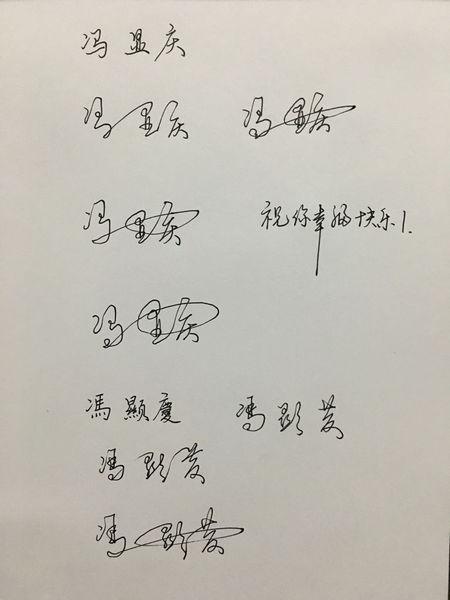 冯显庆
冯显庆 冯显庆
冯显庆 祝你幸福快乐!
冯显庆
馮顯慶 馮顯慶
馮顯慶
馮顯慶